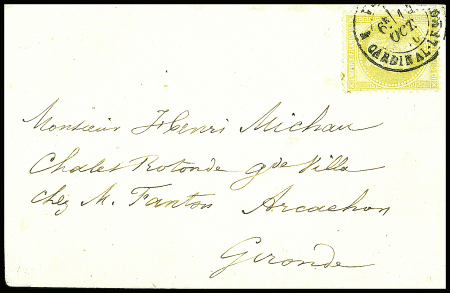 6E / 1
OCT.
CARDINAL-LE
Monsieur Henri Michau
Chalet Rotonde gde Villa
chez M. Fanton Arcachon
Gironde